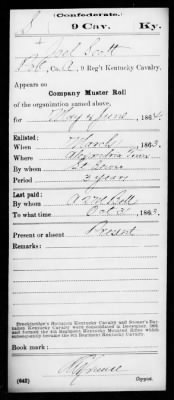 (Confederate.)
S 9 Cav. Ky.
Joel Scott
Pvt, Co. A, 9 Reg't Kentucky Cavalry.
Appears on
Company Muster Roll
of the organization named above,
for May & June, 1864.
Enlisted:
When March, 1863.
Where
By whom
Period 3 years
Last paid:
By whom
To what time Oct 31, 1863.
Present or absent Present
Remarks:
Breckinridge's Battalion Kentucky Cavalry and Stoner's Battalion Kentucky Cavalry were consolidated in December, 1862, and formed the 9th Regiment Kentucky Mounted Rifles which subsequently became the 9th Regiment Kentucky Cavalry.
Book mark:
(642) Copyist.